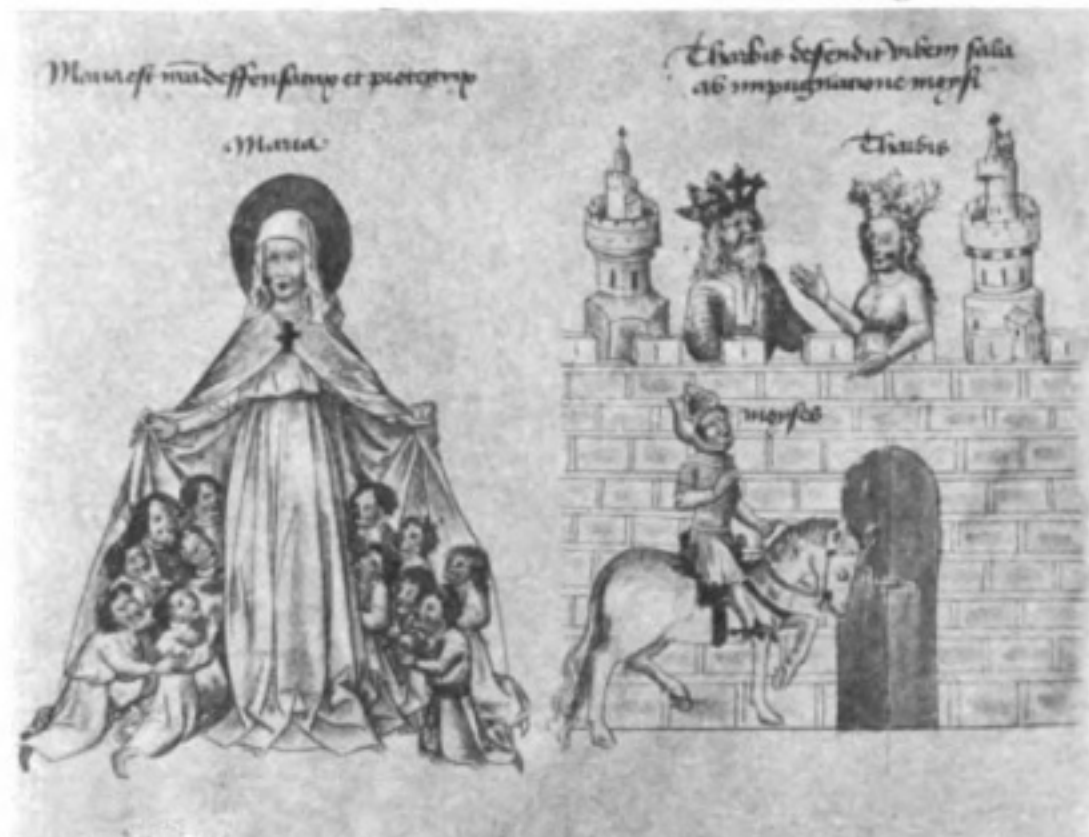 Maria est nr̄a deffensatrix et protectrix
Maria
Tharbis defendit vrbem saba
ab impugnatione moysi
Tharbis
moyses